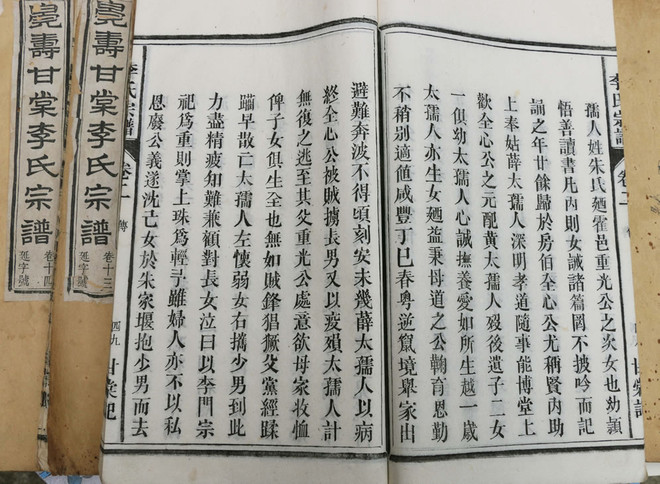 李氏宗譜
卷二
甘棠記
孺人姓朱氏廼霍邑重光公之次女也幼頴
悟善讀書凡內則女誡諸篇罔不披吟而記
誦之年廿餘歸於房伯全心公尤稱賢內助
上奉姑薛太孺人深明孝道隨事能博堂上
歡全心公之元配黃太孺人歿後遺子二女
一俱幼太孺人心誠撫養愛如所生越一歲
太孺人亦生女廼益秉母道之公鞠育恩勤
不稍别適值咸豐丁巳春粤逆竄境舉家出
避難奔波不得頃刻安未幾薛太孺人以病
終全心公被賊擄長男又以疫殞太孺人計
無復之逃至其父重光公處意欲母家妝恤
俾子女俱生全也無如賊鋒猖獗父黨經蹂
躪早散亡太孺人左懷弱女右攜少男到此
力盡精疲知難兼顧對長女泣曰以李門宗
祀爲重則掌上珠爲輕予雖婦人亦不以私
恩廢公義遂沈己女於朱家堰抱少男而去
李氏宗譜
卷二
傳
四九
甘棠記
亳壽甘棠李氏宗譜
卷十三
延字號
亳壽甘棠李氏宗譜
卷十四
延字號